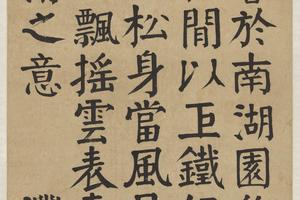 於南湖園
間以鐵
松身當風
飄搖雲表
之意